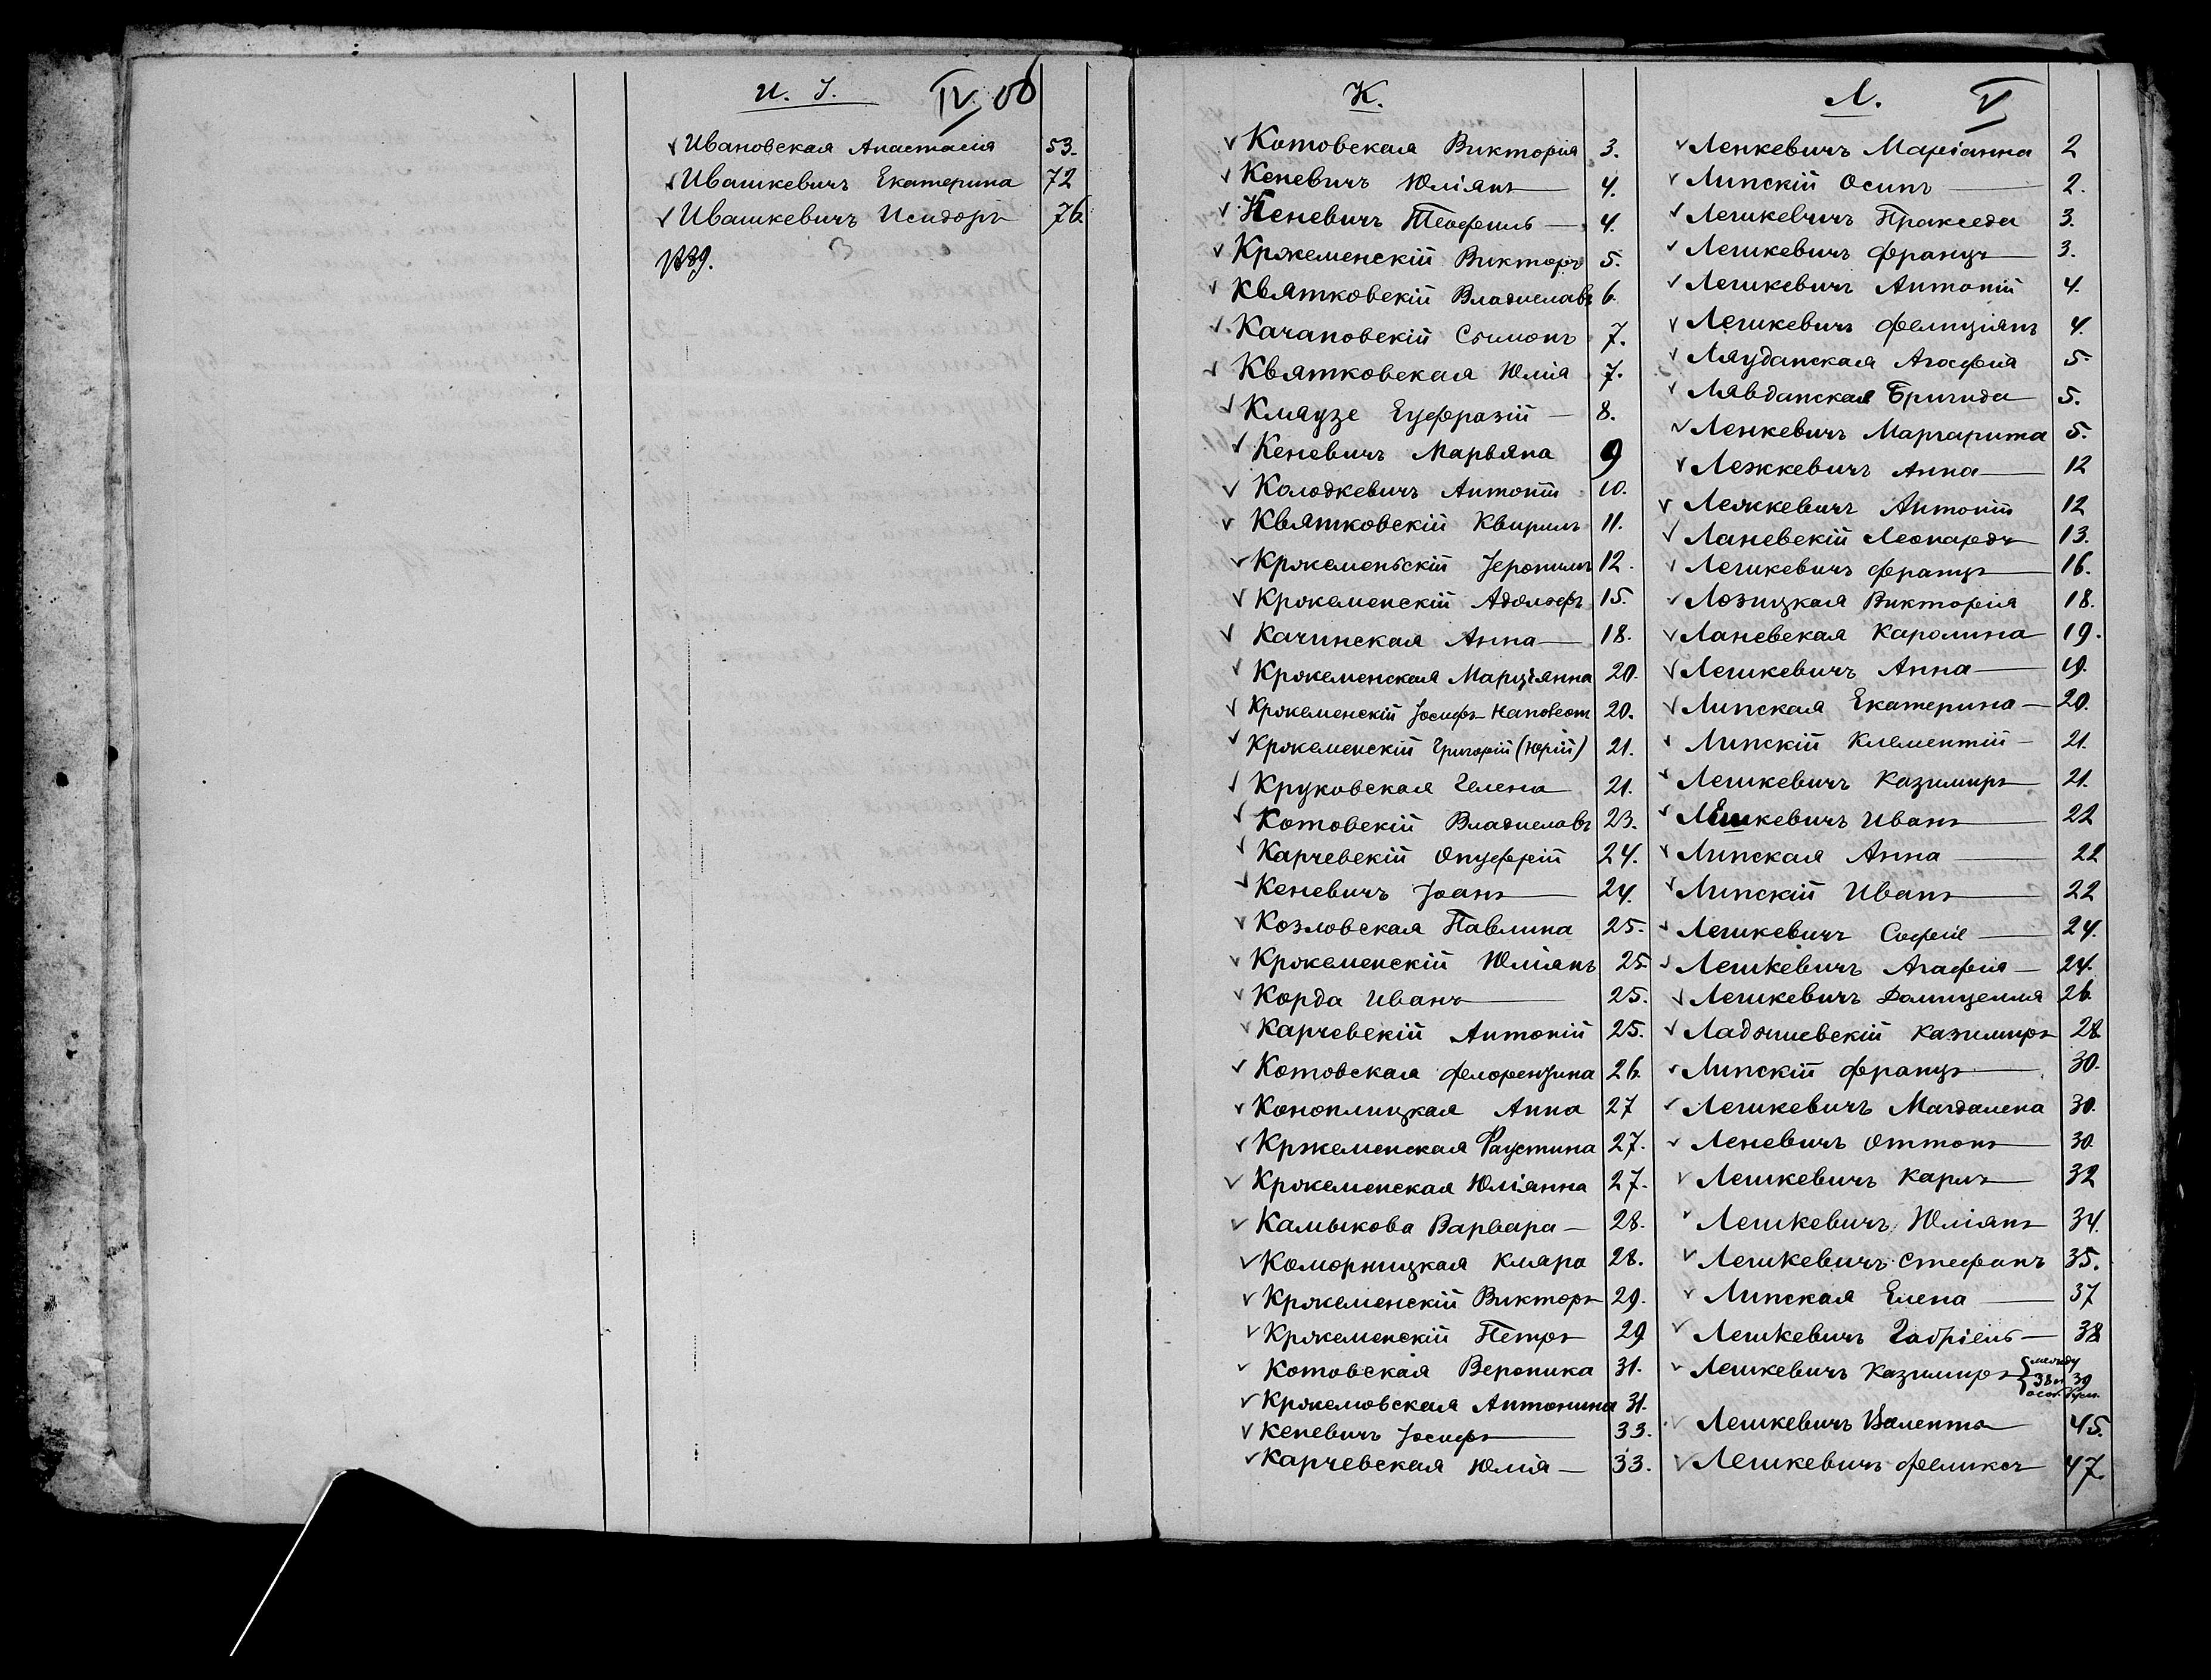 И. І. IV
Ивановская Анастасія 53.
Ивашкевичъ Екатерина 72
Ивашкевичъ Исидоръ 76.
1889.
К.
Котовская Викторія 3.
Кеневичъ Юліянъ 4.
Кеневичъ Теофиль 4.
Кржеменскій Викторъ 5.
Квятковскій Владиславъ 6.
Качановскій Сымонъ 7.
Квятковская Юлія 7.
Клаузе Еуфразій 8.
Кеневичъ Марьяна 9
Колодкевичъ Антоній 10.
Квятковскій Квиринъ 11.
Кржеменьскій Іеронимъ 12.
Кржеменскій Адольфъ 15.
Качинская Анна 18.
Кржеменская Марціянна 20.
Кржеменскій Іосифъ Наполеон 20.
Кржеменскій Григорій (Юрій) 21.
Круковская Гелена 21.
Котовскій Владиславъ 23.
Карчевскій Онуфрій 24.
Кеневичъ Іоанъ 24.
Козловская Павлина 25.
Кржеменскій Юліянъ 25.
Корда Иванъ 25.
Карчевскій Антоній 25.
Котовская Флоренцина 26.
Коноплицкая Анна 27
Кржеменская Фаустина 27.
Кржеменская Юліянна 27.
Камыкова Варвара 28.
Коморницкая Клара 28.
Кржеменскій Викторъ 29.
Кржеменскій Петръ 29
Котовская Вероника 31.
Кржемовская Антонина 31.
Кеневичъ Іосифъ 33.
Карчевская Юлія 33.
Л. V
Ленкевичъ Маріанна 2
Липскій Осипъ 2.
Лешкевичъ Пракседа 3.
Лешкевичъ Францъ 3.
Лешкевичъ Антоній 4.
Лешкевичъ Фелиціянъ 4.
Ляуданская Агафія 5.
Лявданская Бригида 5.
Ленкевичъ Маргарита 5.
Лежкевичъ Анна 12
Лежкевичъ Антоній 12
Ланевскій Леонардъ 13.
Лешкевичъ Францъ 16.
Лозицкая Викторія 18.
Ланевская Каролина 19.
Лешкевичъ Анна 19.
Липская Екатерина 20.
Липскій Клементій 21.
Лешкевичъ Казимиръ 21.
Лешкевичъ Иванъ 22
Липская Анна 22
Липскій Иванъ 22
Лешкевичъ Софія 24.
Лешкевичъ Агафія 24.
Лешкевичъ Домицелля 26.
Казимиръ 28.
Липскій Францъ 30.
Лешкевичъ Магдалена 30.
Леневичъ Оттонъ 30
Лешкевичъ Карлъ 32
Лешкевичъ Юліянъ 34.
Лешкевичъ Стефанъ 35.
Липская Елена 37
Лешкевичъ Габріель 38
Лешкевичъ Казимиръ между
38 и 39
Лешкевичъ Валента 45.
Лешкевичъ Феликсъ 47.